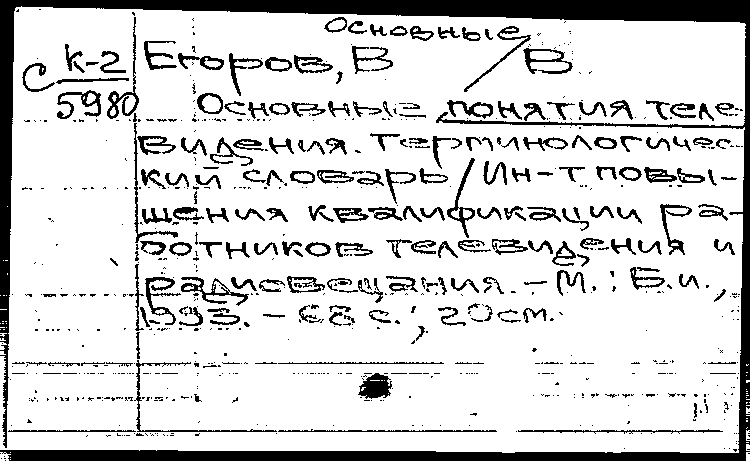 Основные
с к-2 Егоров, В / В
5980 Основные понятия теле-
видения. Терминологичес-
кий словарь / Ин-т повы-
шения квалификации ра-
ботников телевидения и
радиовещания. - М. : Б.и.,
1993. - 68 с.; 20 см.